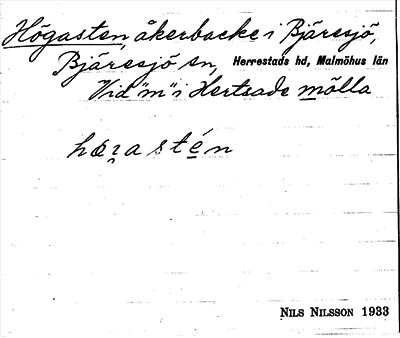 Högasten, åkerbacke i Bjäresjö,
Bjäresjö sn, Herrestads hd, Malmöhus län
Vid "m" i Hertsade mölla
hœɀastén
NILS NILSSON 1933